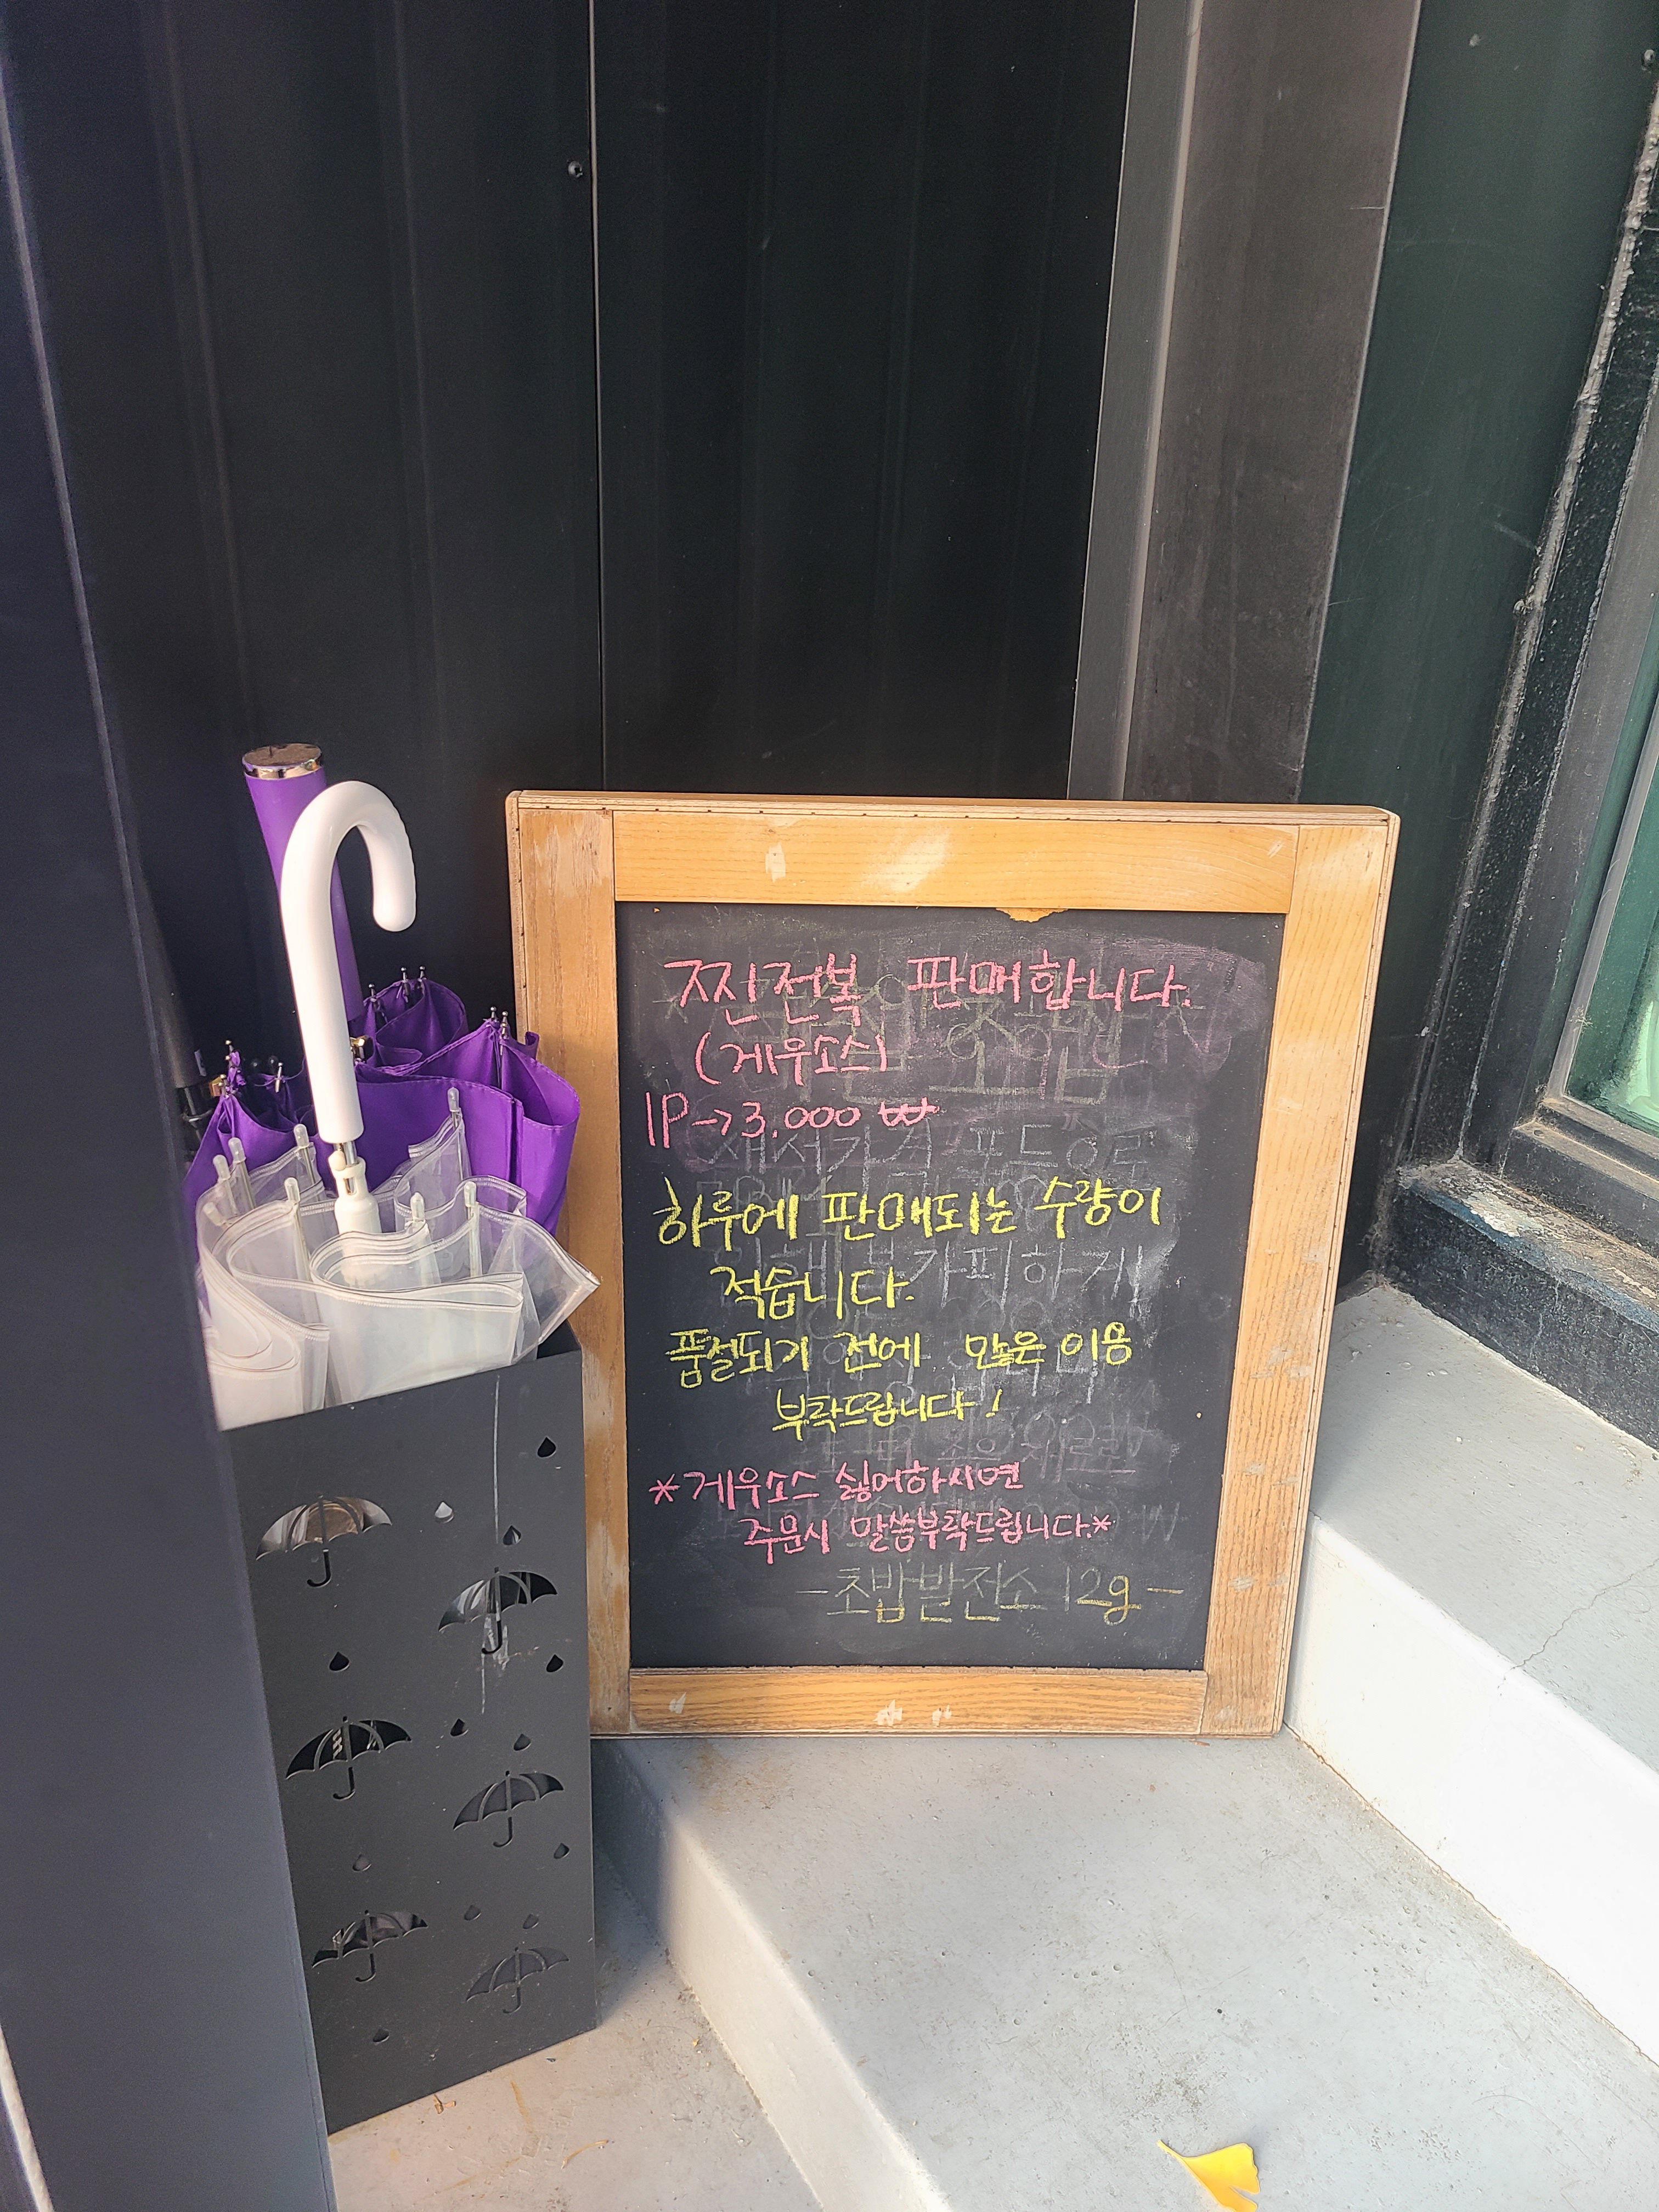 찐전복 판매합니다.
(게우소스)
1P→3,000₩
하루에 판매되는 수량이
적습니다.
품절되기 전에 많은 이용
부탁드립니다!
*게우소스 싫어하시면
주문시 말씀부탁드립니다.*
-초밥발전소 12g-